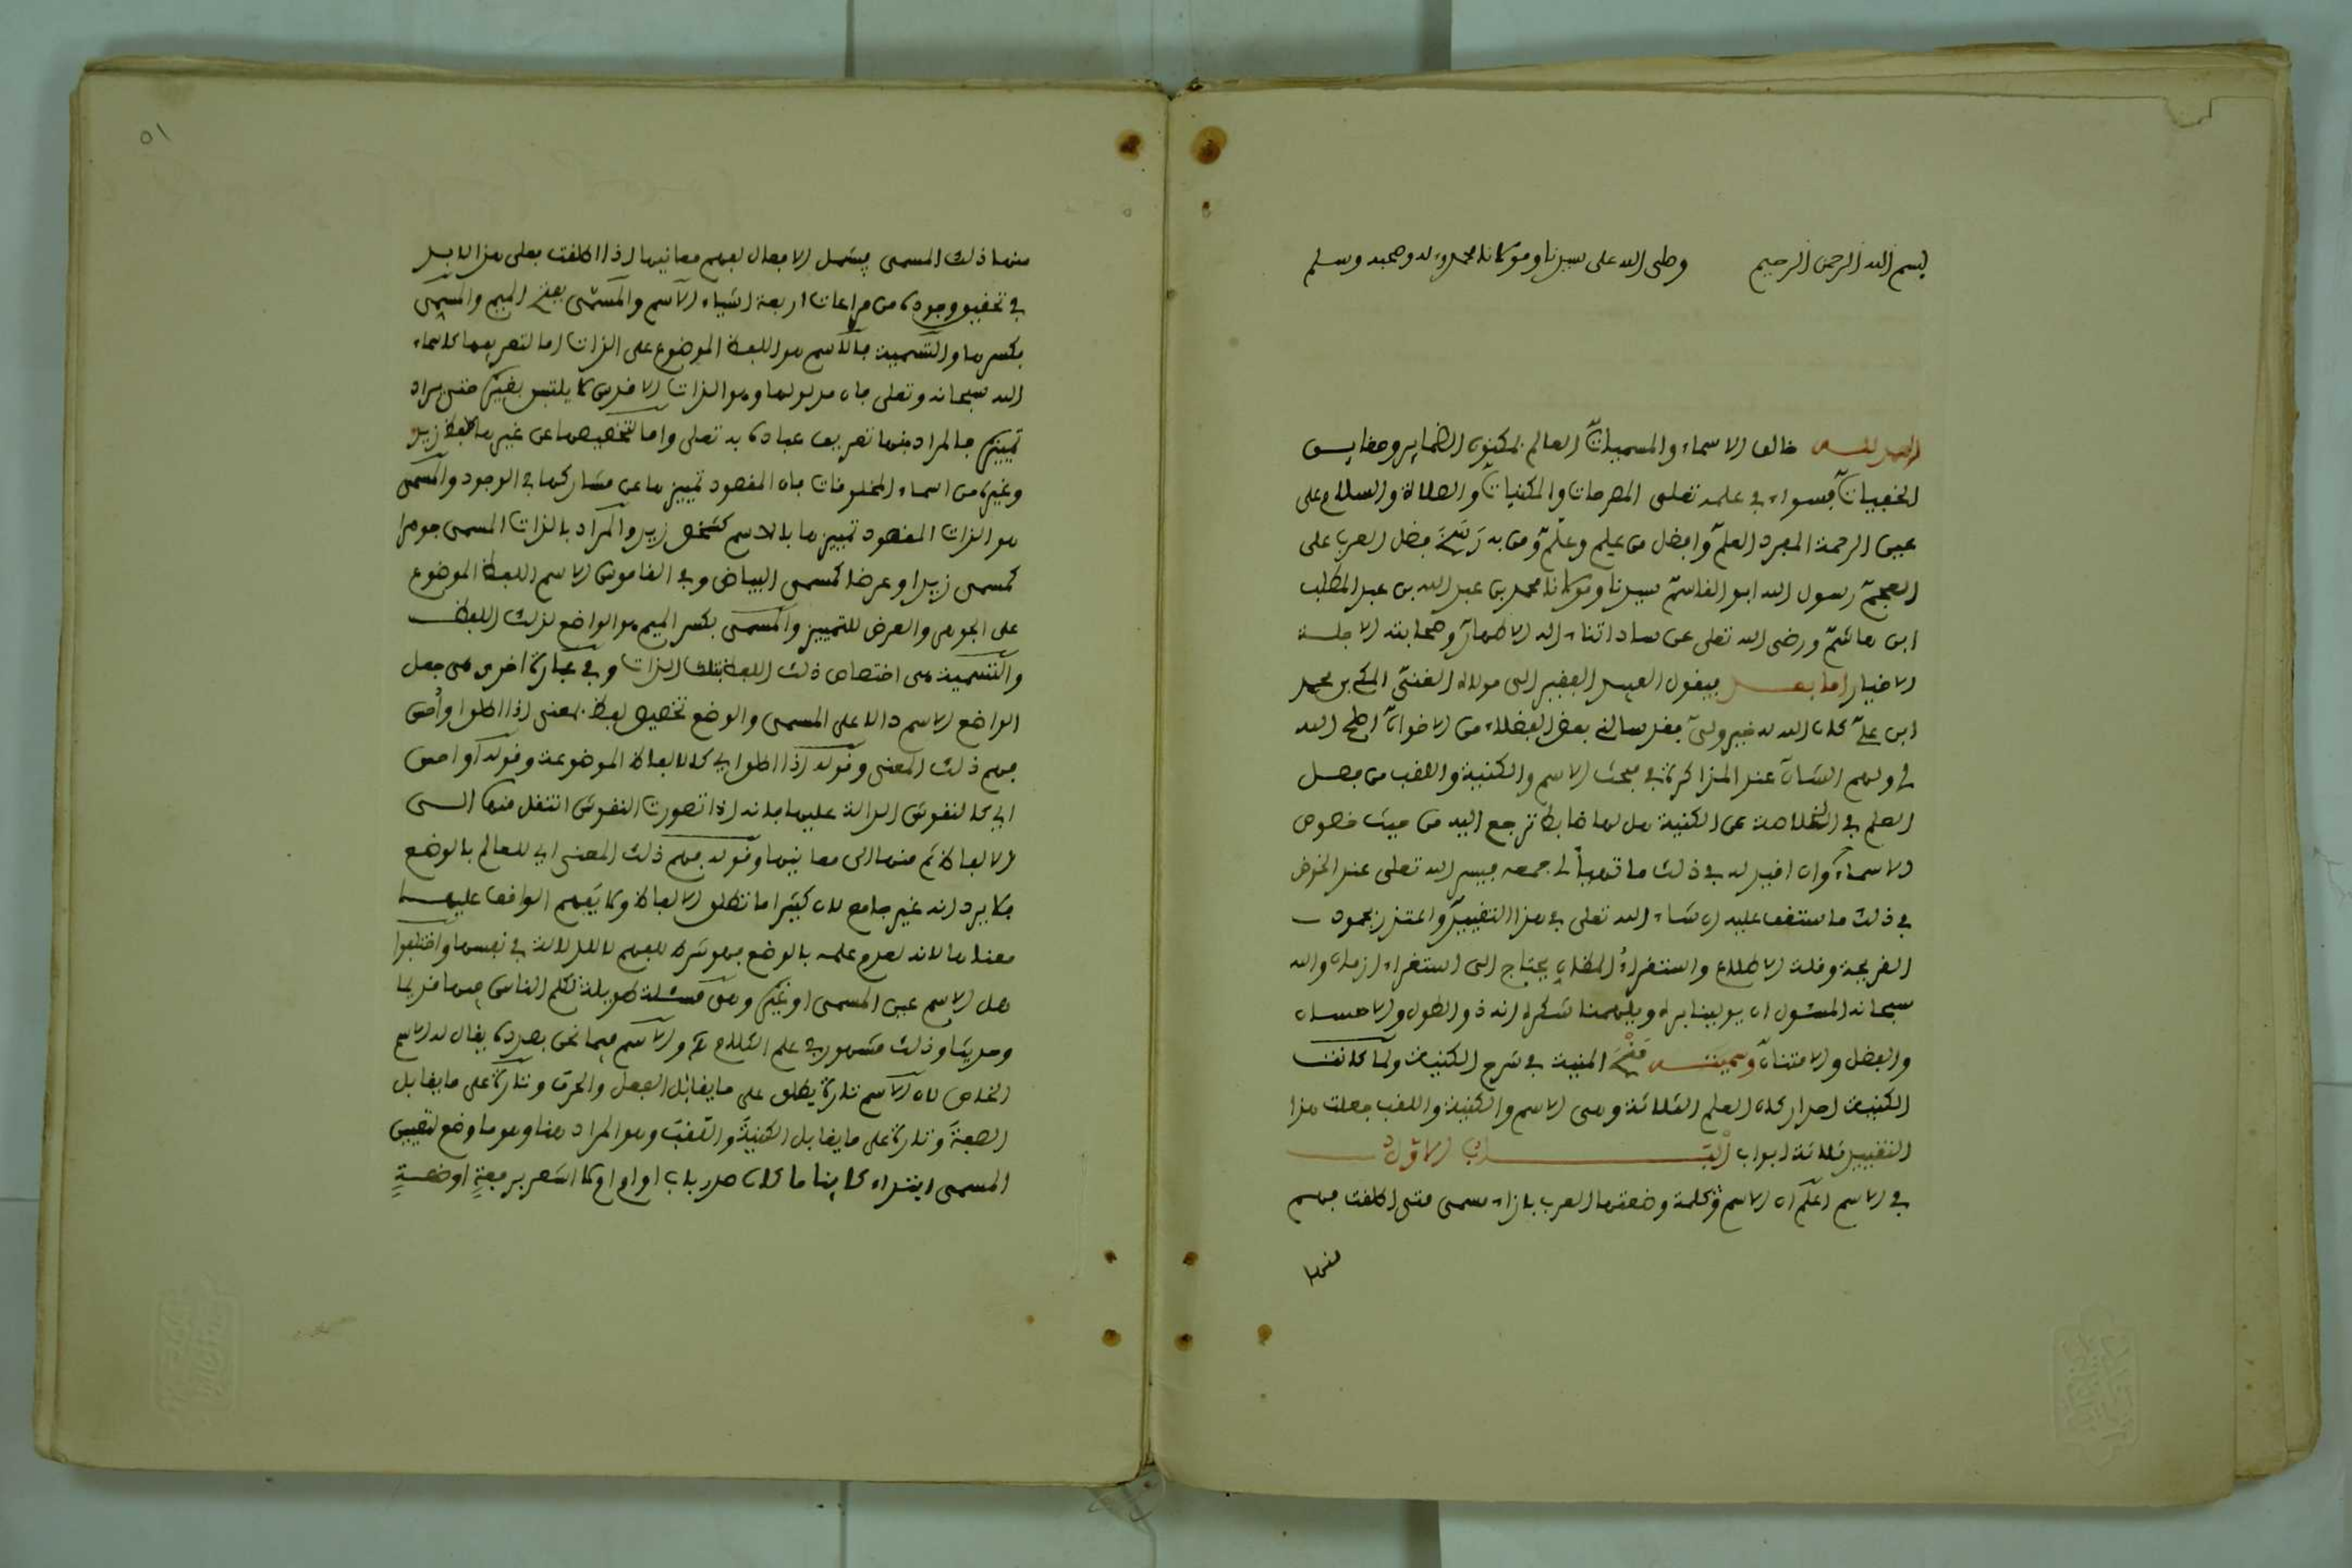 بسم الله الرحمن الرحيم وصلى الله على سيدنا ومولانا محمد وءاله وصحبه وسلم
الحمد لله خالق الاسماء والمسميات العالم بمكنون الضماير وخفايـــ
الخفيات فسواء في علمه تعلى المصرحات والمكنيات والصلاة والسلام على
عين الرحمة المفرد العلم وافضل من عَلِم وعلّم ومن به رسخ فضل العرب على
العجم رسول الله ابو القاسم سيدنا ومولانا محمد بن عبد الله بن عبد المطلب
ابن هاشم ورضى الله تعلى عن ساداتنا ءاله الاطهار وصحابته الاجلة
الاخيار اما بعد فيقول العبد الفقير الى مولاه الغني المكي بن محمد
ابن علي كان الله له خير ولي فقد سالني بعض الفضلاء من الاخوان اصلح الله
لي ولهم الشان عند المذاكرة في مبحث الاسم والكنية واللقب من فصل
العلم في الخلاصة عن الكنية هل لها ضابط ترجع اليه من حيث خصوص
الاسماء وان اقيد له في ذلك ما تهيأ لى جمعه فيسر الله تعلى عند الخوض
في ذلك ما ستقف عليه ان شاء الله تعلى في هذا التقييد واعتذر بجمود
القريحة وقلة الاطلاع واستقراء المظان يحتاج الى استغراء ازمان والله
سبحانه المسئول ان يولينا بره ويلهمنا شكره انه ذو الطول والاحسان
والفضل والامتنان وسميته فتح المنية في شرح الكنية ولما كانت
الكنية احد اركان العلم الثلاثة وهى الاسم والكنية واللقب جعلت هذا
التقييد ثلاثة ابواب البـــاب الاول
في الاسم اعلم ان الاسم كلمة وضعتها العرب بازاء مسمى متى اطلقت فهم
منها
٥١
منها ذلك المسمى فيشمل الافعال لفهم معانيها اذا اطلقت فعلى هذا لابد
في تحقيق وجوده من مراعات اربعة اشياء الاسم والمسمَّى بفتح الميم والمسمِّى
بكسرها والتسمية فالاسم هو اللفظ الموضوع على الذات اما لتعريفها كاسماء
الله سبحانه وتعلى فان مدلولها وهو الذات الاقدس لا يلتبس بغيره حتى يراد
تمييزه فالمراد منها تعريف عباده به تعلى واما لتخصيصها عن غيرها كلفظ زيد
وغيره من اسماء المخلوقات فان المقصود تمييزها عن مشاركها في الوجود والمسمى
هو الذات المقصود تمييزها بالاسم كشخص زيد والمراد بالذات المسمى جوهرا
كمسمى زيد او عرضا كمسمى البياض وفي القاموس الاسم اللفظ الموضوع
على الجوهر والعرض للتمييز والمسمى بكسر الميم هو الواضع لذلك اللفظ
والتسمية هى اختصاص ذلك اللفظ بتلك الذات وفي عبارة اخرى هى جعل
الواضع الاسم دالا على المسمى والوضع تخصيص لفظ بمعنى اذا اطلق او أُحس
فهم ذلك المعنى وقوله اذا اطلق اي كالالفاظ الموضوعة وقوله او احس
اي كالنقوش الدالة عليها فانه اذا تصورت النقوش انتقل منها الـــى
الالفاظ ثم منها الى معانيها وقوله فهم ذلك المعنى اي للعالم بالوضع
فلا يرد انه غير جامع لان كثيرا ما تطلق الالفاظ ولا يَفهم الواقف عليهــا
معناها لانه لعدم علمه بالوضع فهو شرط للفهم لا للدلالة في نفسها واختلفوا
هل الاسم عين المسمى او غيره وهى مسئلة طويلة تكلم الناس فيها قديما
وحديثا وذلك مشهور في علم الكلام والاسم فيما نحن بصدده يقال له الاسم
الخاص لان الاسم تارة يطلق على ما يقابل الفعل والحرف وتارة على ما يقابل
الصفة وتارة على ما يقابل الكنية واللقب وهو المراد هنا وهو ما وضع لتعيين
المسمى ابتداء كاينا ما كان صدر باب او ام او لا اشعر برفعةٍ او ضعــةٍ